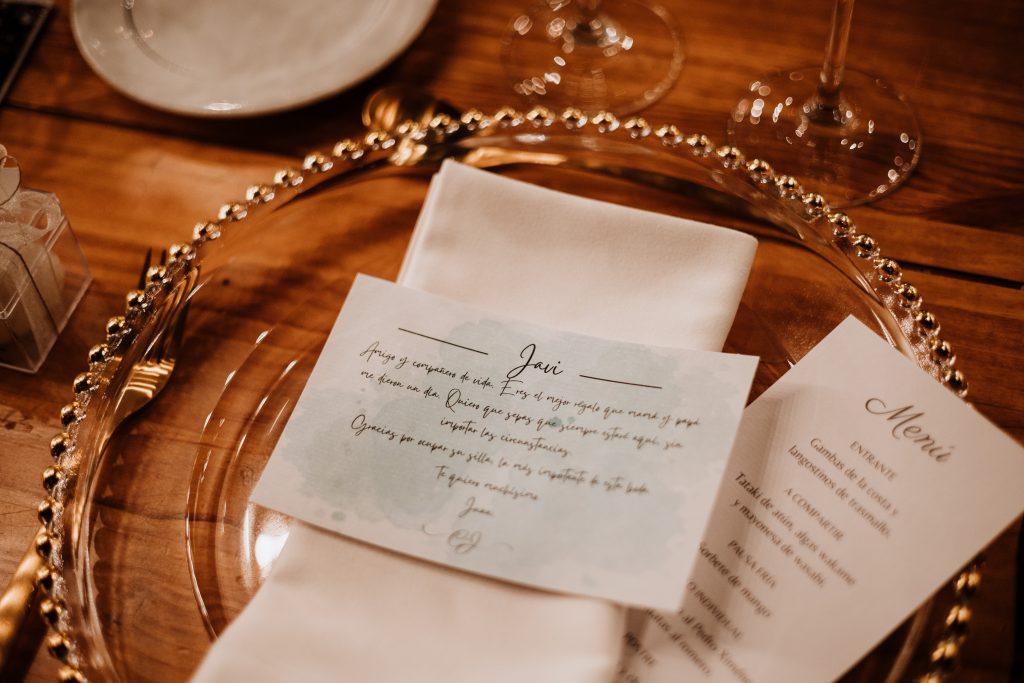 Javi
Amigo y compañero de vida. Eres el mejor regalo que mamá y papá
me dieron un día. Quiero que sepas que siempre estaré aquí, sin
importar las circunstancias.
Gracias por ocupar su silla, la más importante de esta boda.
Te quiero muchísimo
Juan
Menú
ENTRANTE
Gambas de la costa y
langostinos de trasmallo,
A COMPARTIR
Tataki de atún, algas wakame
y mayonesa de wasabi.
PAUSA FRÍA
Sorbete de mango
INDIVIDUAL
al Pedro Ximénez
al romero,